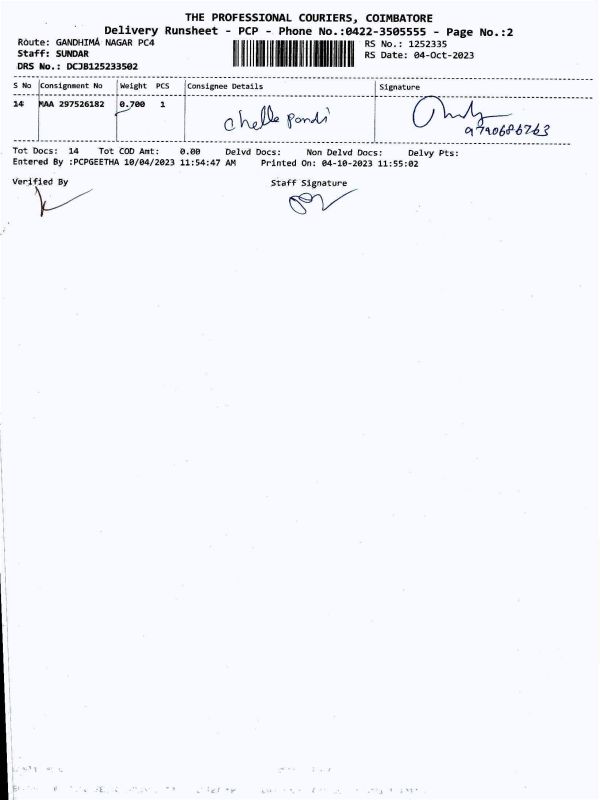 THE PROFESSIONAL COURIERS, COIMBATORE
Delivery Runsheet - PCP - Phone No.:0422-3505555 - Page No.:2
Route: GANDHIMA NAGAR PC4 RS No.: 1252335
Staff: SUNDAR RS Date: 04-Oct-2023
DRS No.: DCJB125233502
S No Consignment No Weight PCS Consignee Details Signature
14 MAA 297526182 0.700 1 Chella pandi
9790686263
Tot Docs: 14 Tot COD Amt: 0.00 Delvd Docs: Non Delvd Docs: Delvy Pts:
Entered By :PCPGEETHA 10/04/2023 11:54:47 AM Printed On: 04-10-2023 11:55:02
Verified By Staff Signature